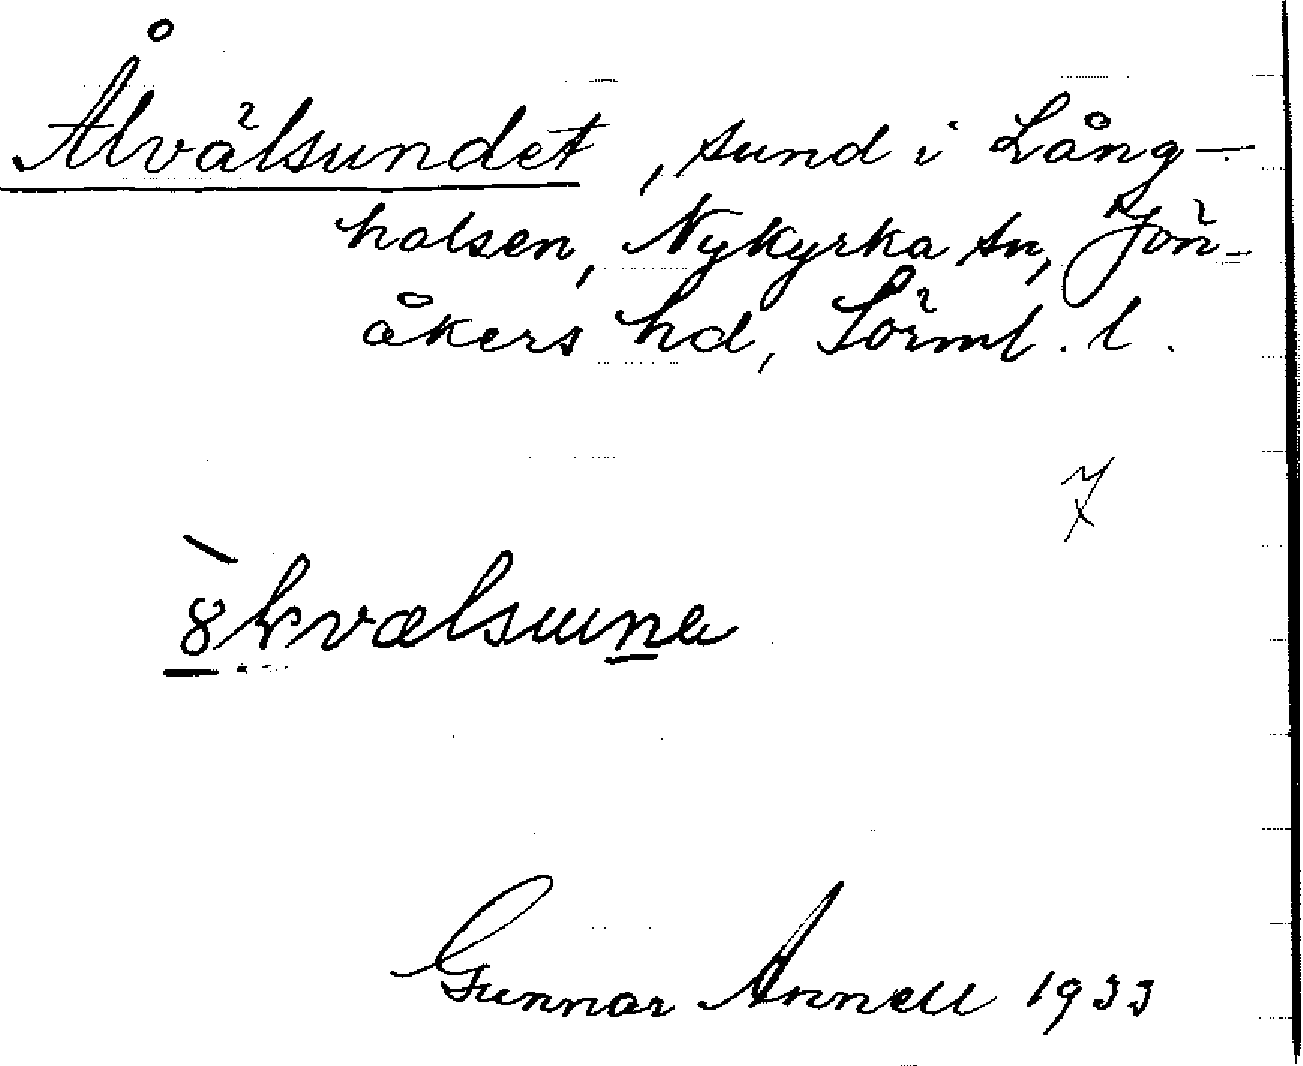 Ålvälsundet, sund i Lång-
halsen, Nykyrka sn, Jön-
åkers hd, Sörml. l.
7
Gunnar Annell 1933